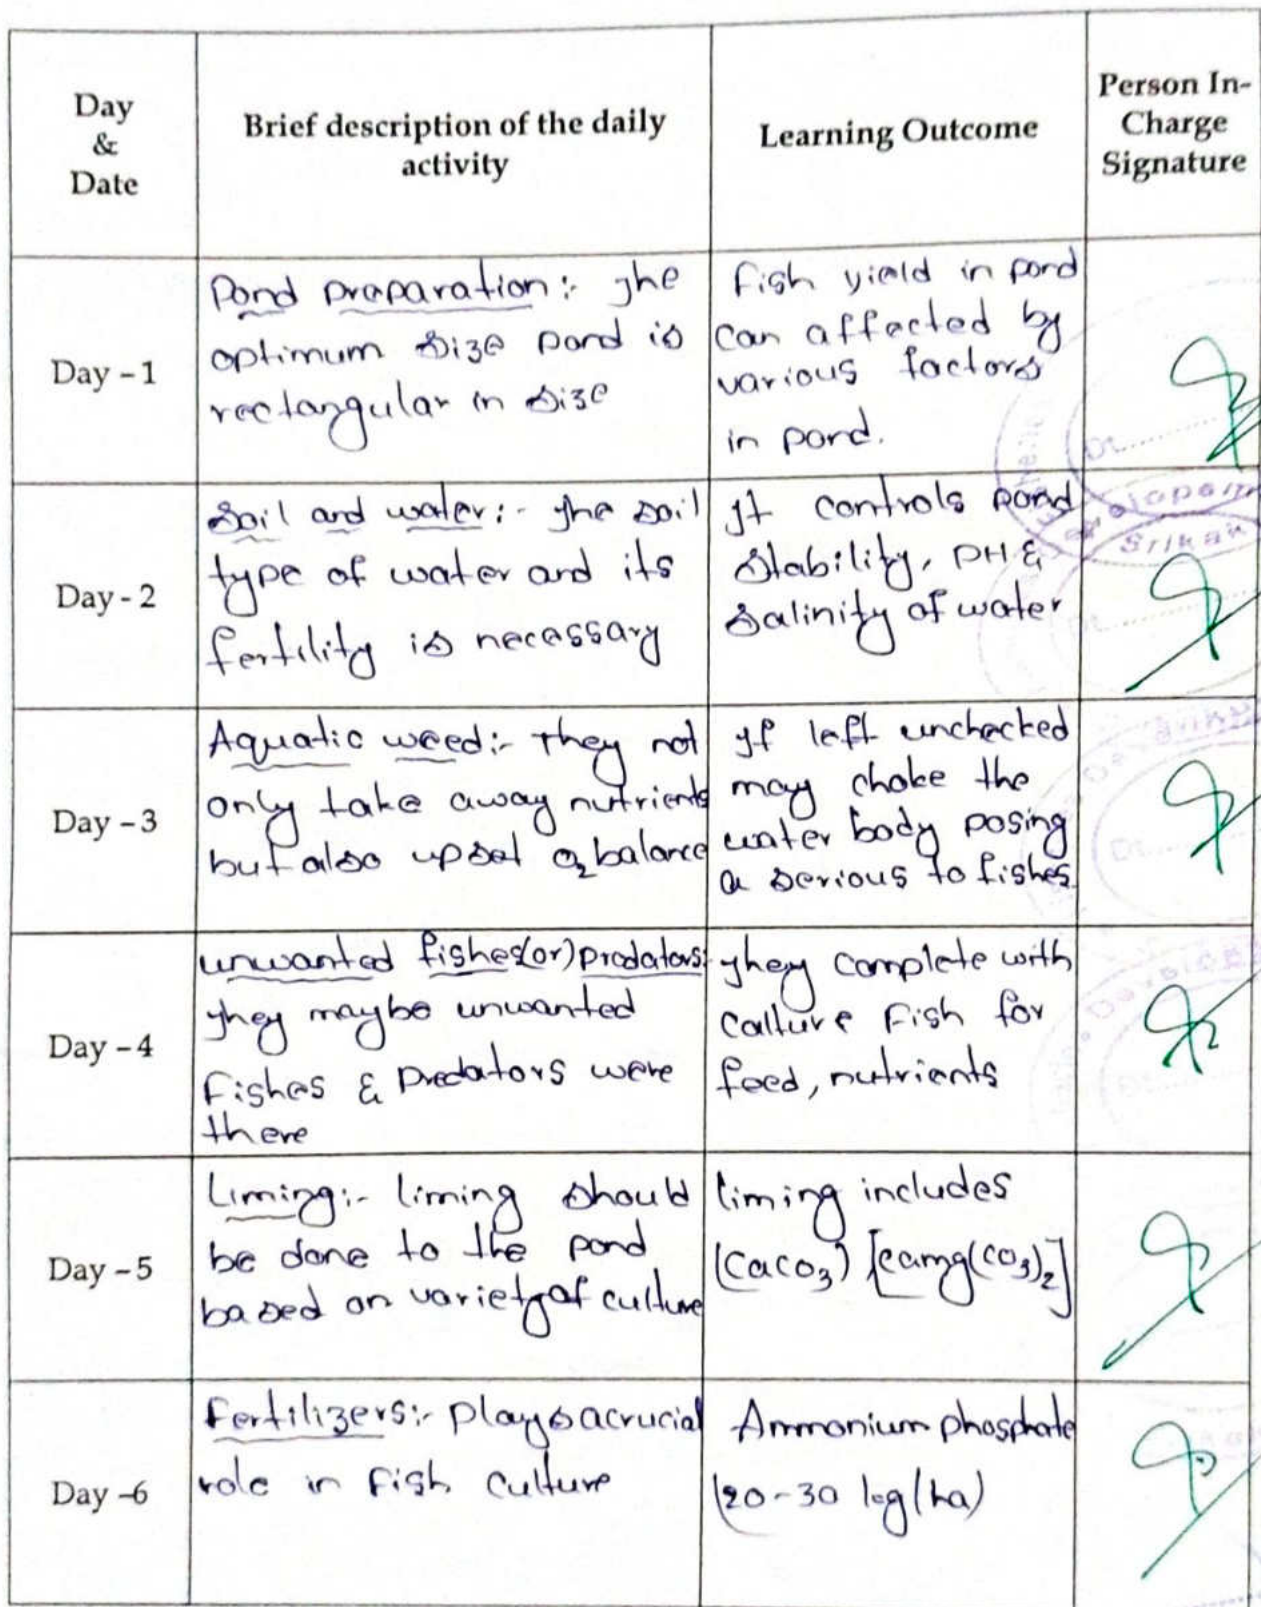 Day
&
Date
Brief description of the daily
activity
Learning Outcome
Person In-
Charge
Signature
Day – 1
Pond preparation:- The
optimum size pond is
rectangular in size
Fish yield in pond
can affected by
various factors
in pond.
Day - 2
Soil and water:- The soil
type of water and its
fertility is necessary
It controls pond
stability, PH &
salinity of water
Day – 3
Aquatic weed:- They not
only take away nutrients
but also upset O2 balance
If left unchecked
may choke the
water body posing
a serious to fishes
Day – 4
unwanted fishes(or)predators:
They maybe unwanted
Fishes & Predators were
there
They complete with
calture Fish for
feed, nutrients
Day – 5
Liming:- liming should
be done to the pond
based on variety of culture
liming includes
(CaCO3) [camg(CO3)2]
Day –6
Fertilizers:- plays a crucial
role in Fish culture
Ammonium phosphate
(20-30 kg/ha)